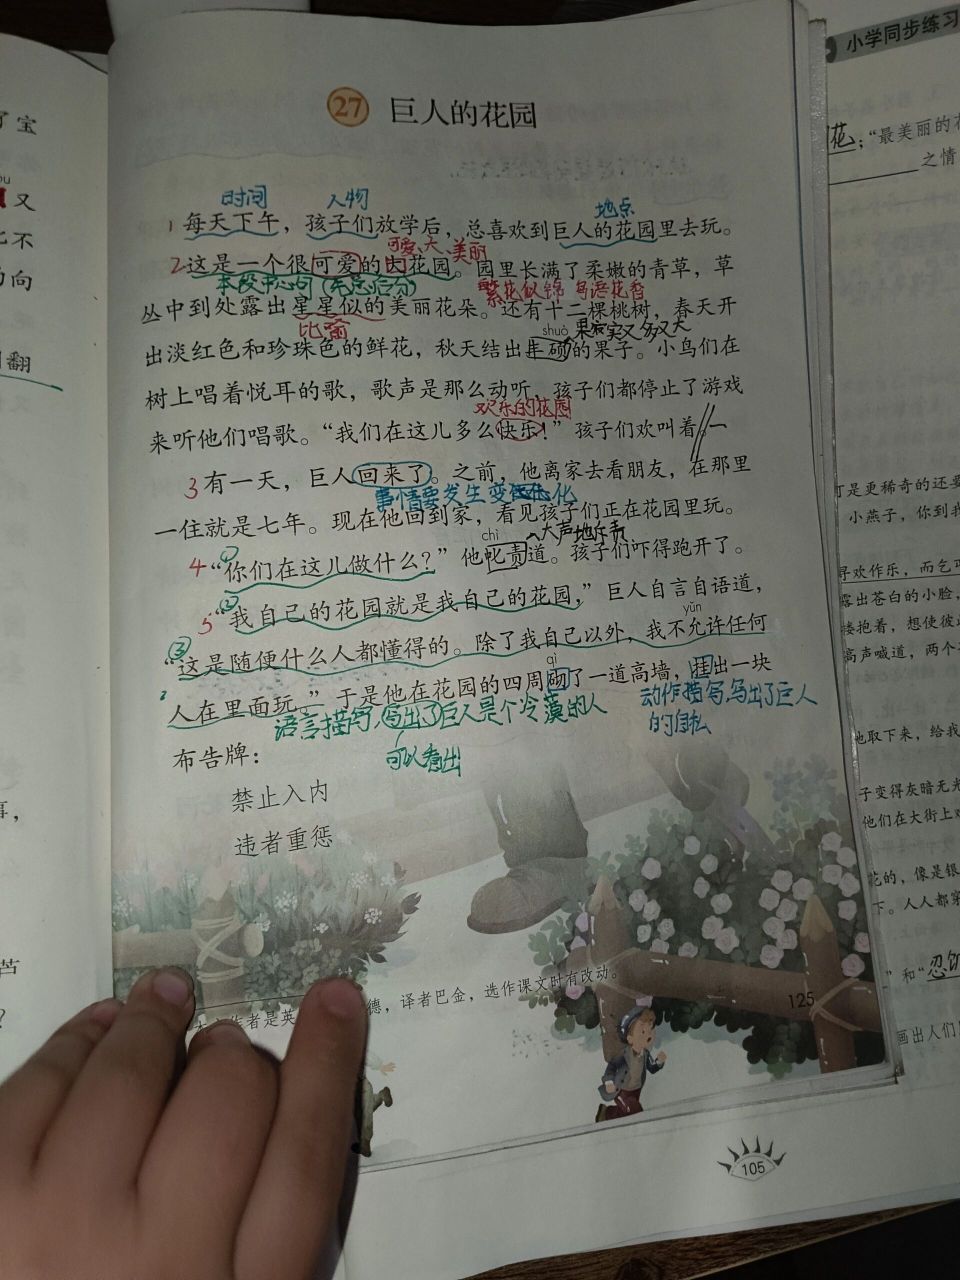 27 巨人的花园
时间 人物 地点
1 每天下午，孩子们放学后，总喜欢到巨人的花园里去玩。
可爱、大、美丽
2 这是一个很可爱的大花园。园里长满了柔嫩的青草，草
本段中心句（先总后分） 繁花似锦 鸟语花香
丛中到处露出星星似的美丽花朵。还有十二棵桃树，春天开
比喻 shuò 果实又多又大
出淡红色和珍珠色的鲜花，秋天结出丰硕的果子。小鸟们在
树上唱着悦耳的歌，歌声是那么动听，孩子们都停止了游戏
欢乐的花园
来听他们唱歌。“我们在这儿多么快乐！”孩子们欢叫着。
3 有一天，巨人回来了。之前，他离家去看朋友，在那里
事情要发生变化
一住就是七年。现在他回到家，看见孩子们正在花园里玩。
chì 大声地斥责
4 ① “你们在这儿做什么？”他叱责道。孩子们吓得跑开了。
5 ② “我自己的花园就是我自己的花园，”巨人自言自语道，
yǔn
③ “这是随便什么人都懂得的。除了我自己以外，我不允许任何
qì
人在里面玩。”于是他在花园的四周砌了一道高墙，挂出一块
语言描写，写出了巨人是个冷漠的人 动作描写，写出了巨人
的自私
可以看出
布告牌：
禁止入内
违者重惩
德，译者巴金，选作课文时有改动。
125
105
小学同步练习
花；“最美丽的花
之情
是更稀奇的还要
小燕子，你到我
寻欢作乐，而乞丐
露出苍白的小脸，
搂抱着，想使彼此
高声喊道，两个
他取下来，给我
子变得灰暗无光
他们在大街上欢
花的，像是银
下。人人都穿
”和“忍饥
画出人们
宝
又
不
向
翻